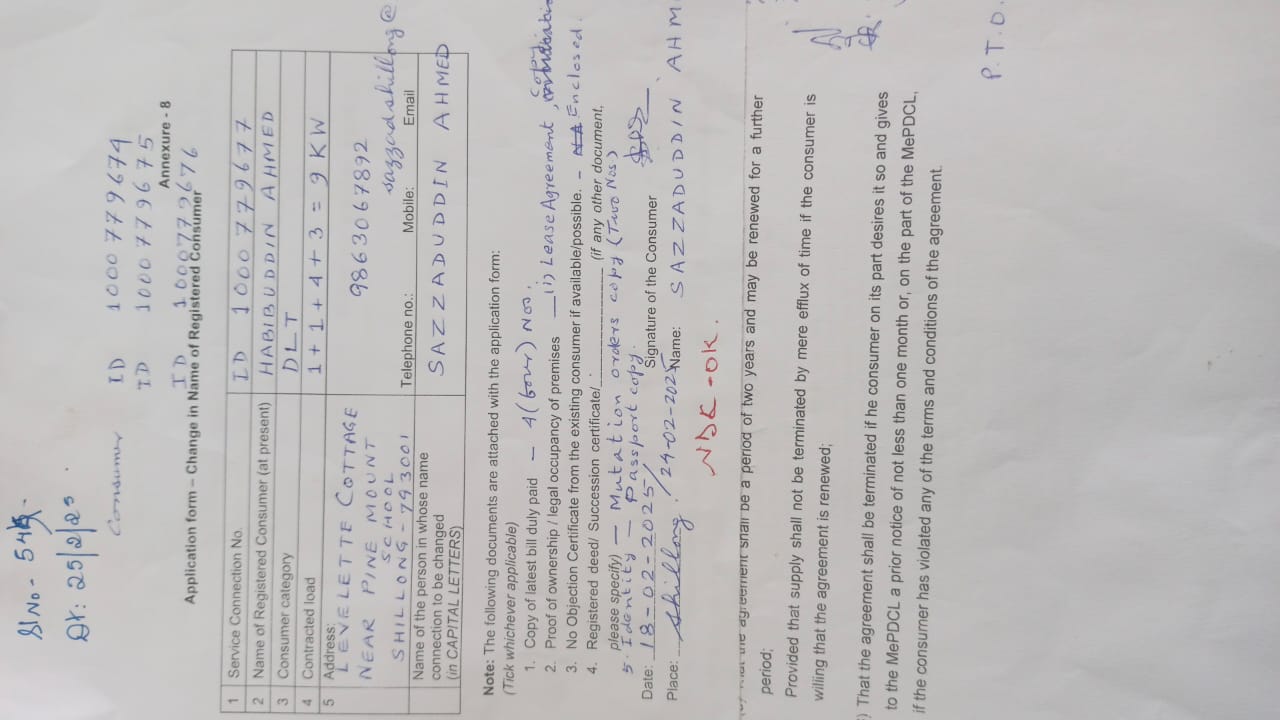 Sl No - 54
Dt: 25/2/25
Consumer ID 1000779674
ID 1000779675
Annexure - 8
ID 1000779676
Application form – Change in Name of Registered Consumer
1 Service Connection No. ID 1000779677
2 Name of Registered Consumer (at present) HABIBUDDIN AHMED
3 Consumer category DLT
4 Contracted load 1+1+4+3 = 9 KW
5 Address:
LEVELETTE COTTAGE
NEAR PINE MOUNT 9863067892
SCHOOL sazzadshillong@
SHILLONG - 793001 Telephone no.: Mobile: Email
Name of the person in whose name SAZZADUDDIN AHMED
connection to be changed
(in CAPITAL LETTERS)
Note: The following documents are attached with the application form:
(Tick whichever applicable)
1. Copy of latest bill duly paid – 4 (four) Nos.
2. Proof of ownership / legal occupancy of premises ii) Lease Agreement, copy
3. No Objection Certificate from the existing consumer if available/possible. – NA Enclosed.
4. Registered deed/ Succession certificate/ (if any other document,
please specify) – Mutation orders copy (Two Nos)
5. Identity – Passport copy.
Date: 18-02-2025 / Signature of the Consumer
Place: Shillong. / 24-02-2025 Name: SAZZADUDDIN AHM
-OK.
That the agreement shall be a period of two years and may be renewed for a further
period;
Provided that supply shall not be terminated by mere efflux of time if the consumer is
willing that the agreement is renewed;
) That the agreement shall be terminated if he consumer on its part desires it so and gives
to the MePDCL a prior notice of not less than one month or, on the part of the MePDCL,
if the consumer has violated any of the terms and conditions of the agreement.
P.T.O.